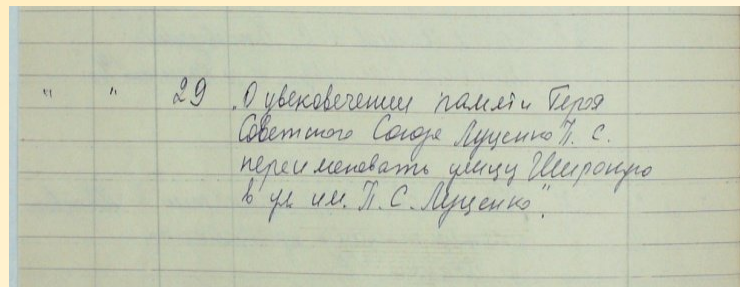 " " 29 „О увековечении памяти Героя
Советского Союза Луценко П. С.
переименовать улицу Широкую
в ул. им. П. С. Луценко".